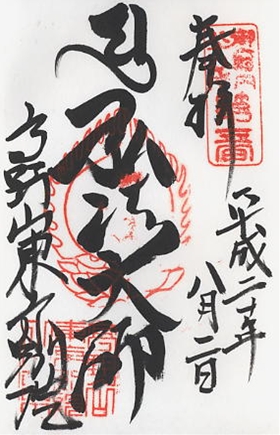 奉拝
平成二十年
八月二日
弘法大師
高野山東京別院